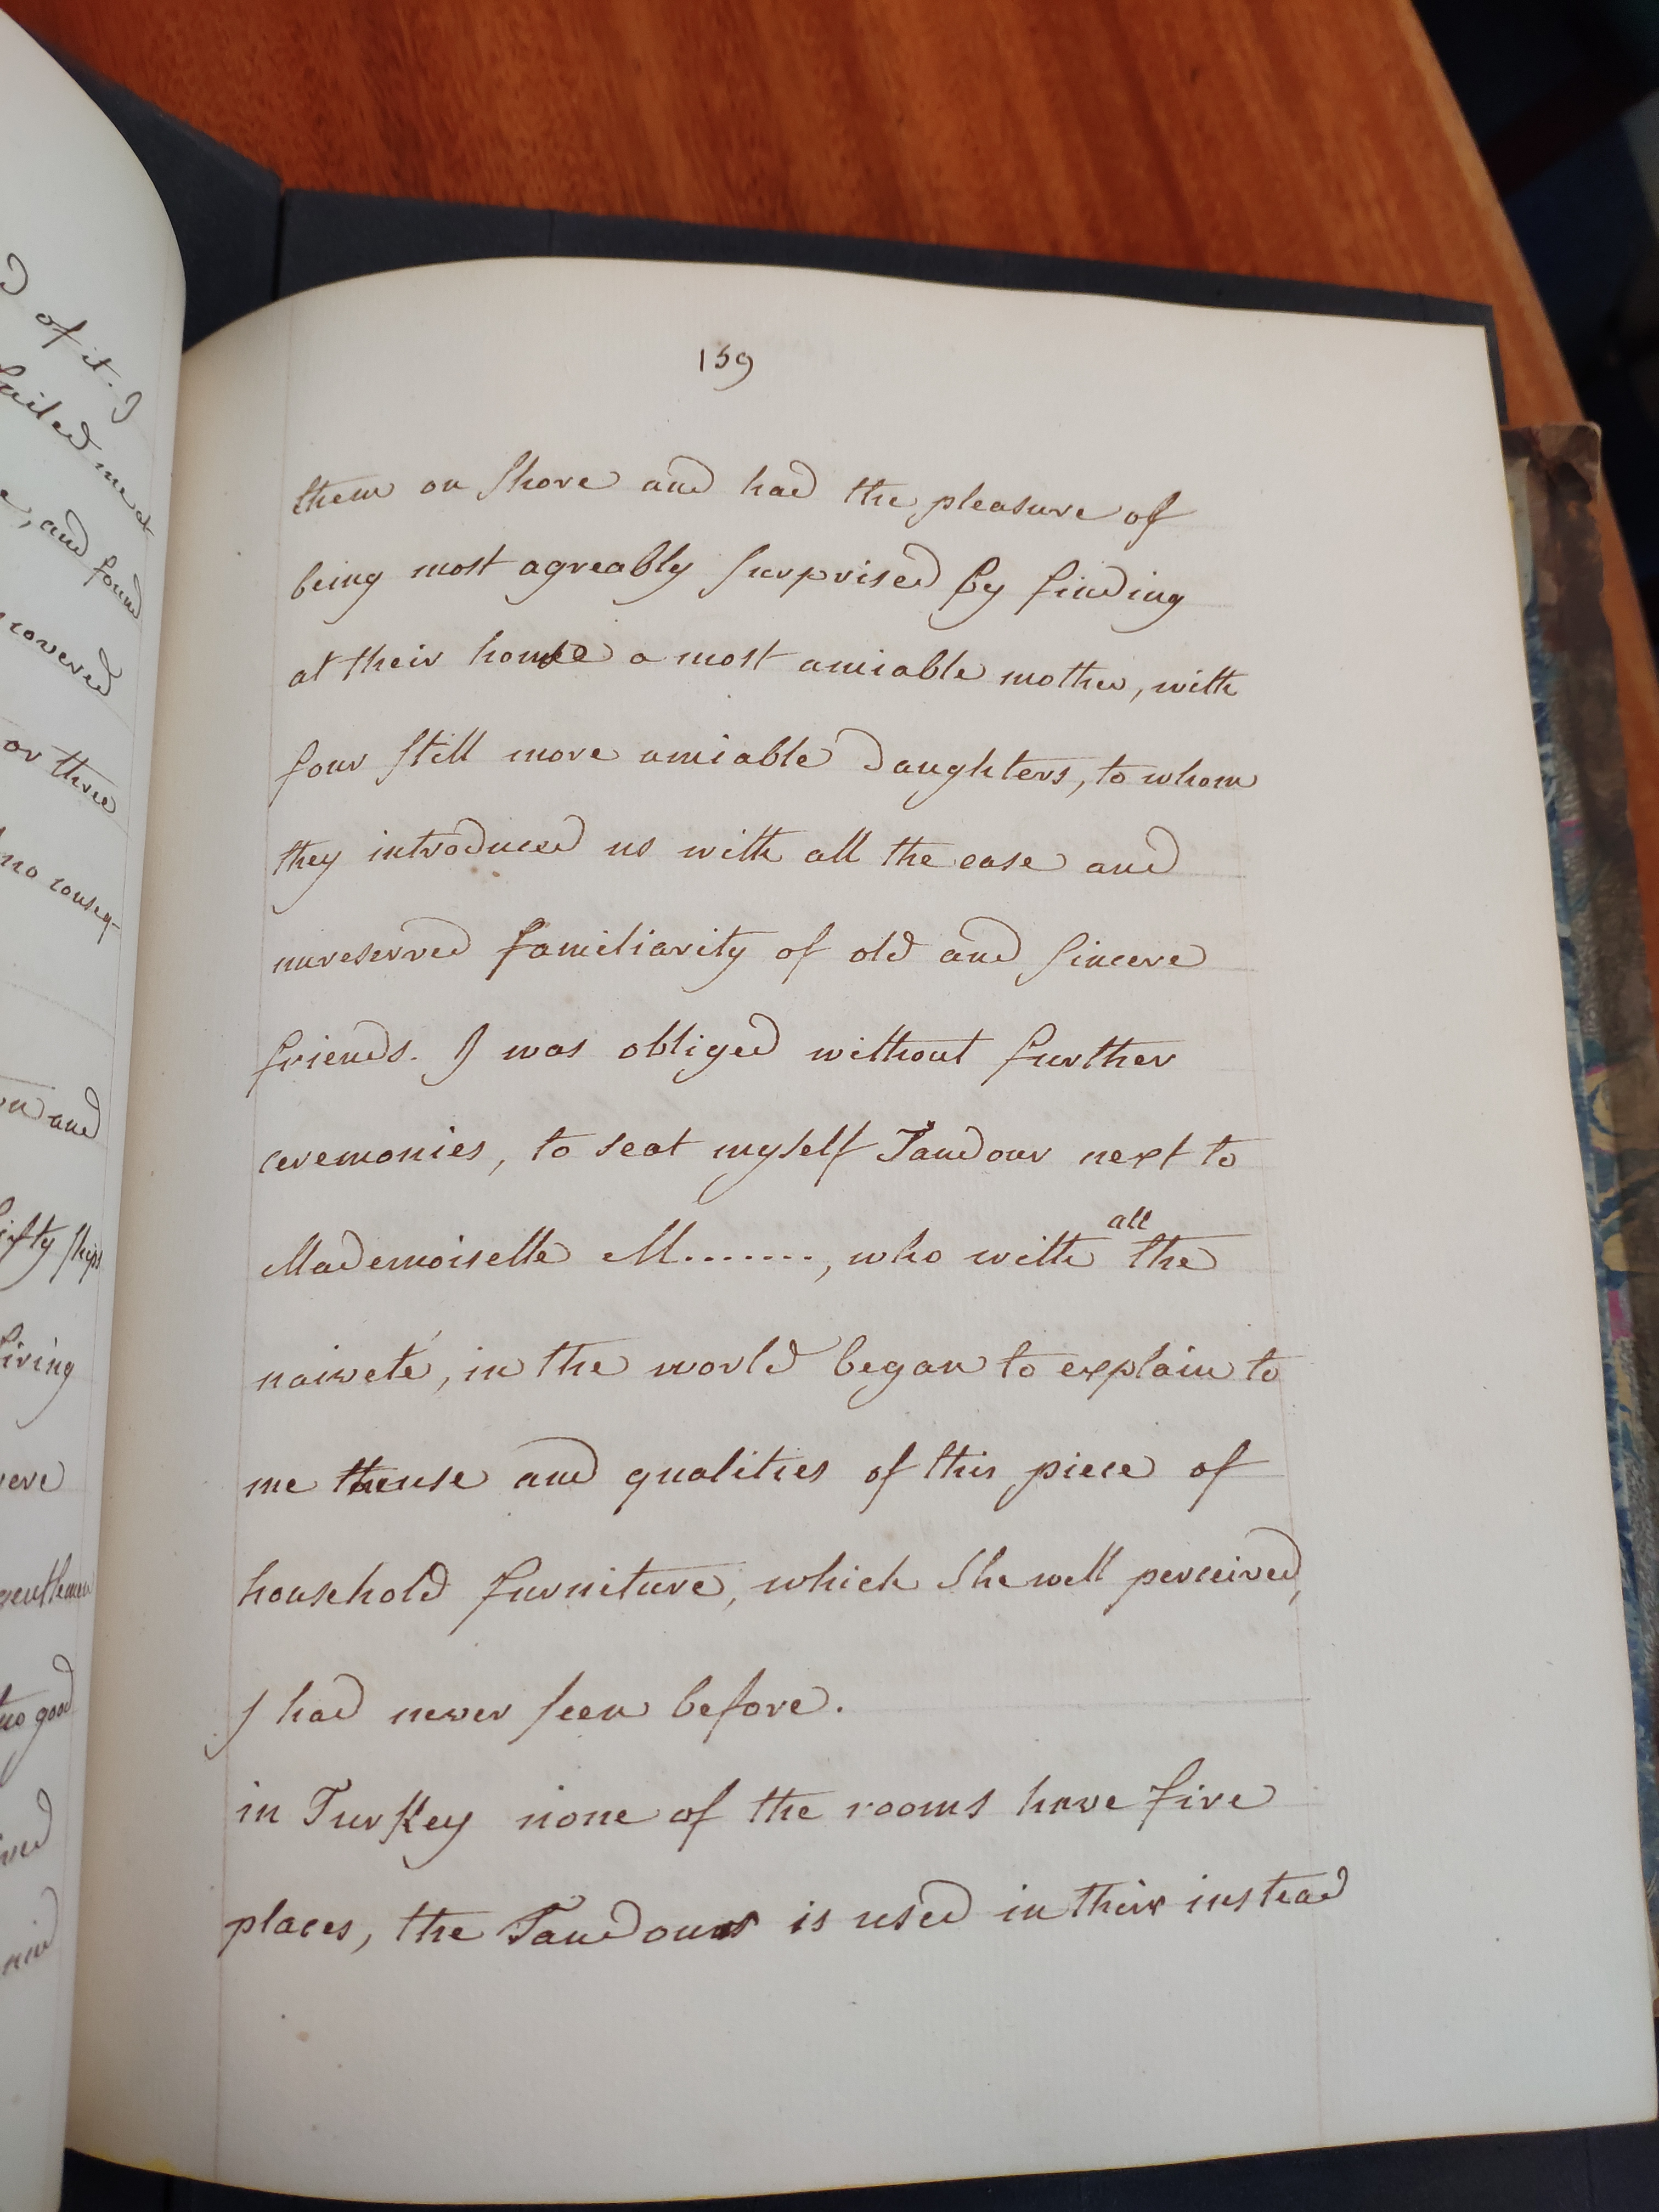 of it. I
me at
e, and found
covered
or three
no conseq-
and
fifty ships
living
gentlemen
no good
159
them on shore and had the pleasure of
being most agreably surprised by finding
at their house a most amiable mother, with
four still more amiable daughters, to whom
they introduced us with all the ease and
unreserved familiarity of old and sincere
friends. I was obliged without further
ceremonies, to seat myself Tandour next to
all
Mademoiselle M......., who with the
naiveté, in the world began to explain to
me the use and qualities of this piece of
household furniture, which she well perceived,
I had never seen before.
in Turkey none of the rooms have fire
places, the Tandour is used in their instead